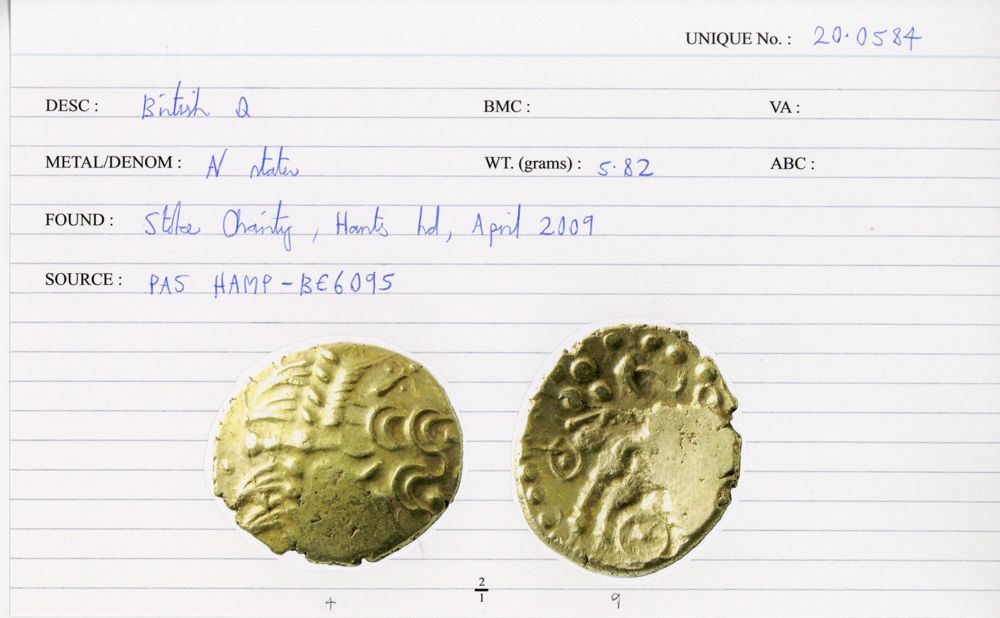 UNIQUE No. : 20.0584
DESC : British Q BMC : VA :
METAL/DENOM : N stater WT. (grams) : 5.82 ABC :
FOUND : Stoke Charity, Hants hd, April 2009
SOURCE : PAS HAMP-BE6095
2/1
+ 9